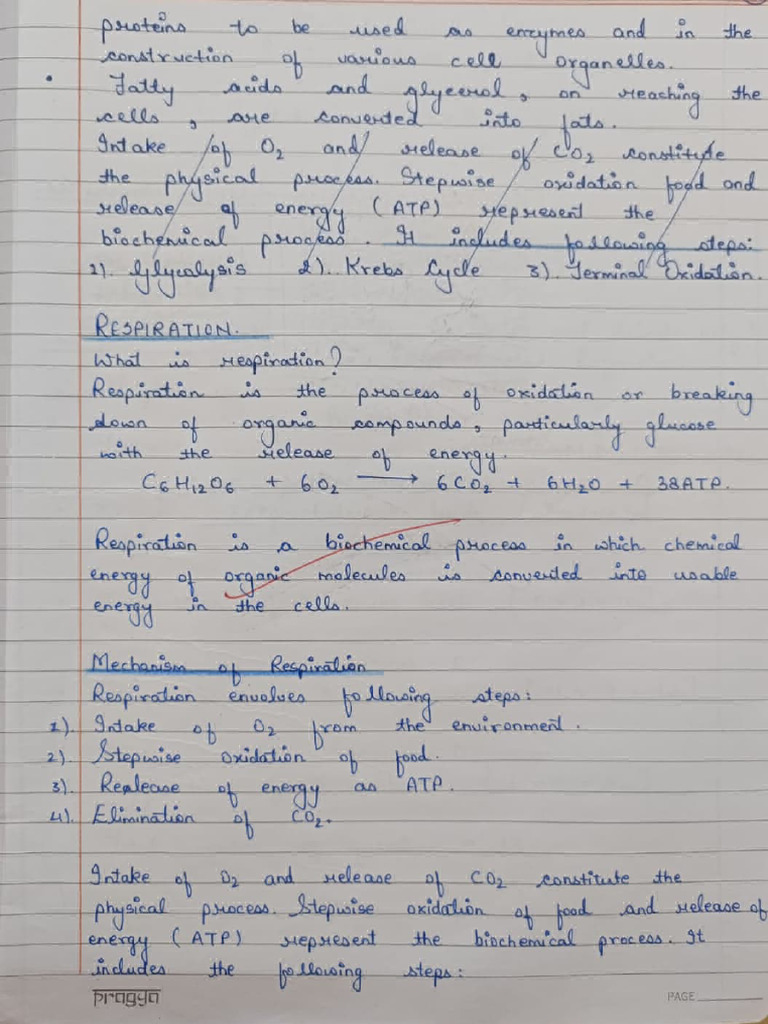 proteins to be used as enzymes and in the
construction of various cell organelles.
• Fatty acids and glycerol, on reaching the
cells, are converted into fats.
Intake of O₂ and release of CO₂ constitute
the physical process. Stepwise oxidation food and
release of energy (ATP) represent the
biochemical process. It includes following steps:
1). Glycolysis 2). Krebs Cycle 3). Terminal Oxidation.
RESPIRATION.
What is respiration?
Respiration is the process of oxidation or breaking
down of organic compounds, particularly glucose
with the release of energy.
C₆H₁₂O₆ + 6O₂ → 6CO₂ + 6H₂O + 38ATP.
Respiration is a biochemical process in which chemical
energy of organic molecules is converted into usable
energy in the cells.
Mechanism of Respiration
Respiration envolves following steps:
1). Intake of O₂ from the environment.
2). Stepwise oxidation of food.
3). Replease of energy as ATP.
4). Elimination of CO₂.
Intake of O₂ and release of CO₂ constitute the
physical process. Stepwise oxidation of food and release of
energy (ATP) represent the biochemical process. It
includes the following steps:
pragya PAGE